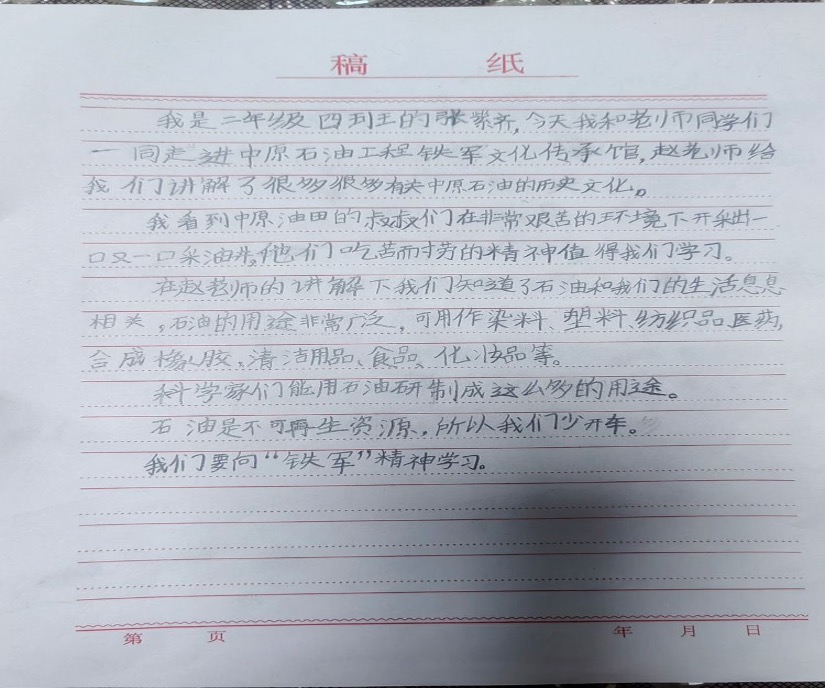 稿 纸
我是二年级四班的张紫乔,今天我和老师同学们
一同走进中原石油工程铁军文化传承馆,赵老师给
我们讲解了很多很多有关中原石油的历史文化。
我看到中原油田的叔叔们在非常艰苦的环境下开采出一
口又一口采油井,他们吃苦耐劳的精神值得我们学习。
在赵老师的讲解下我们知道了石油和我们的生活息息
相关,石油的用途非常广泛,可用作染料、塑料、纺织品、医药,
合成橡胶,清洁用品、食品、化妆品等。
科学家们能用石油研制成这么多的用途。
石油是不可再生资源,所以我们少开车。
我们要向“铁军”精神学习。
第 页 年 月 日